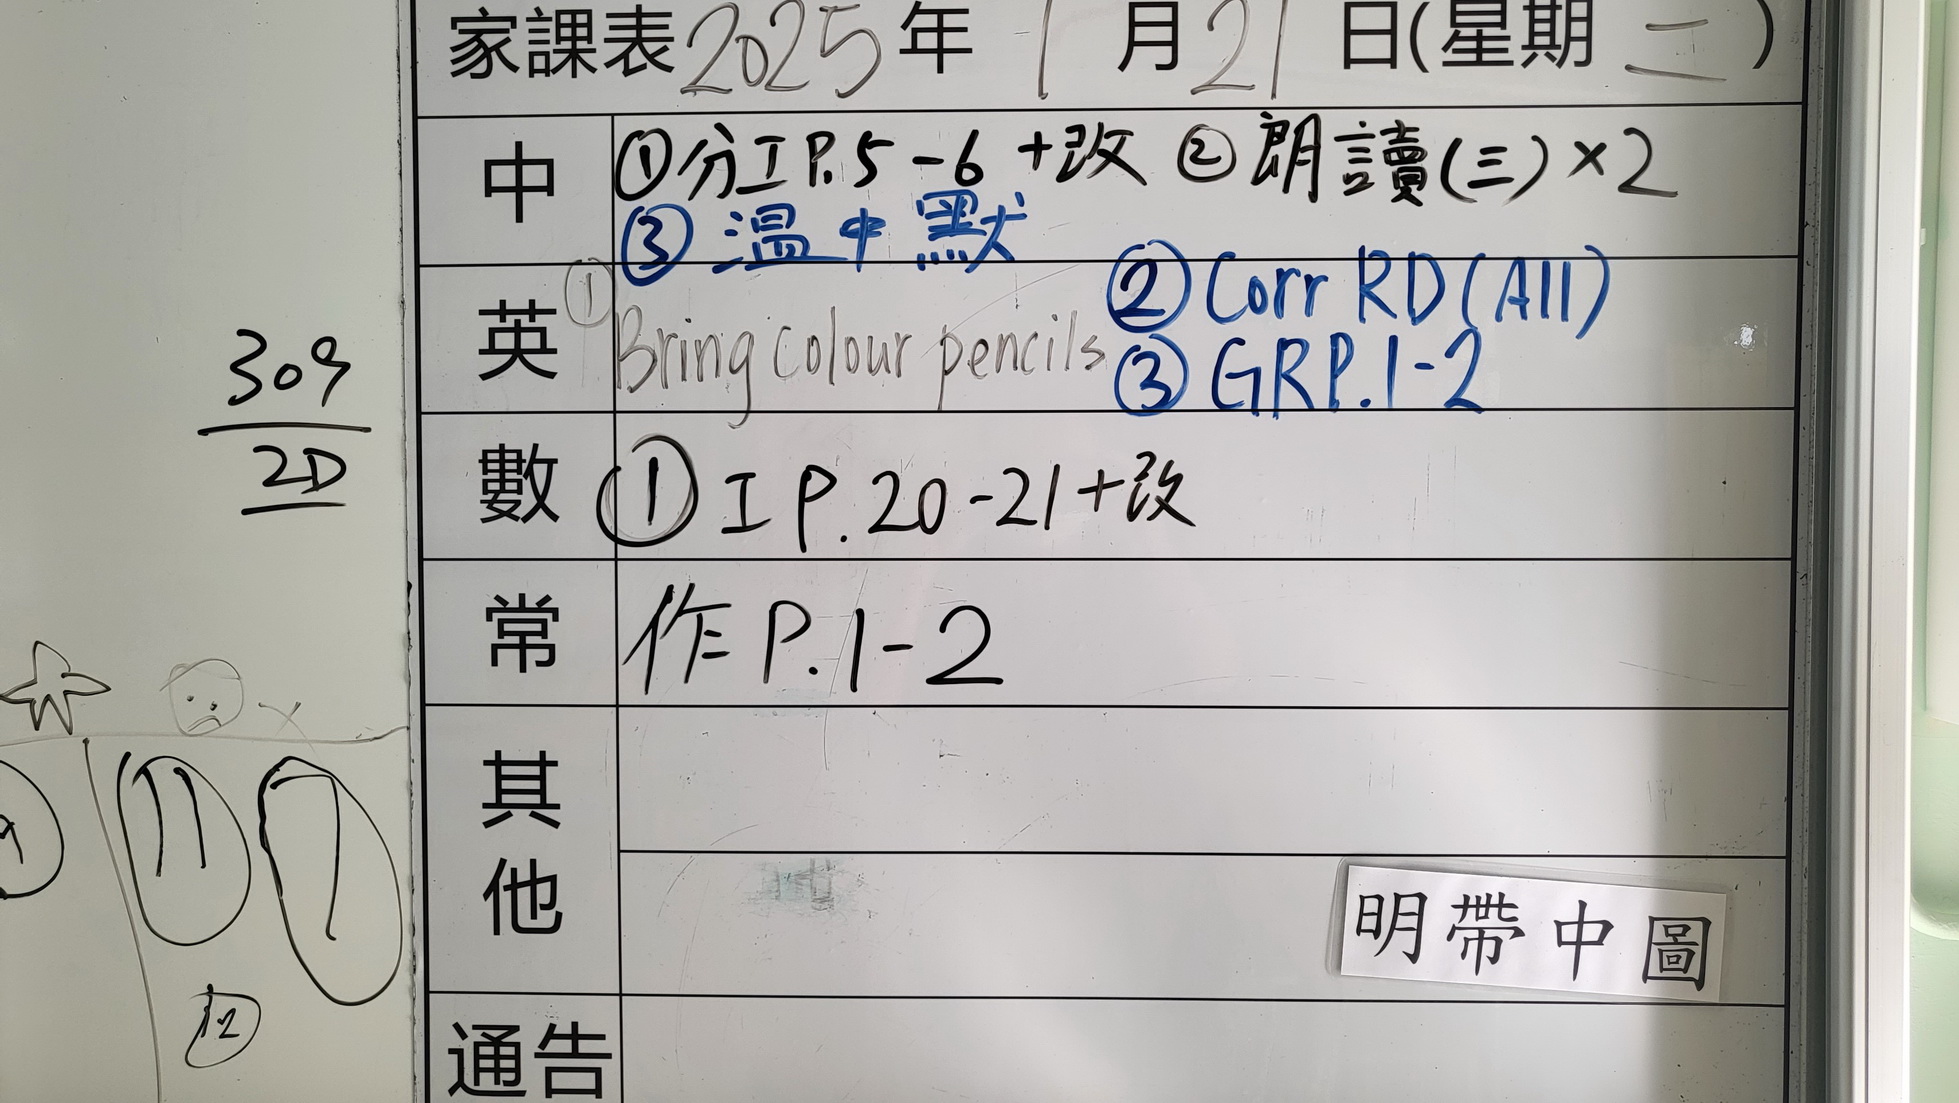 家課表 2025 年 1 月 21 日(星期 二)
中 ①分工P.5-6 +改 ②朗讀(三)×2
③溫中默
英 ① Bring colour pencils ② Corr RD(All)
③ GRP.1-2
數 ① 工 P.20-21+改
常 作 P.1-2
其他
明帶中圖
通告
309
2D
9
11
7
12